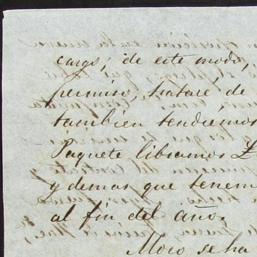 cargo; de este modo,
permiso, trataré de
tambien tendremos
Paquete libramos £
y demas que tenem
al fin del año.
Moro se ha